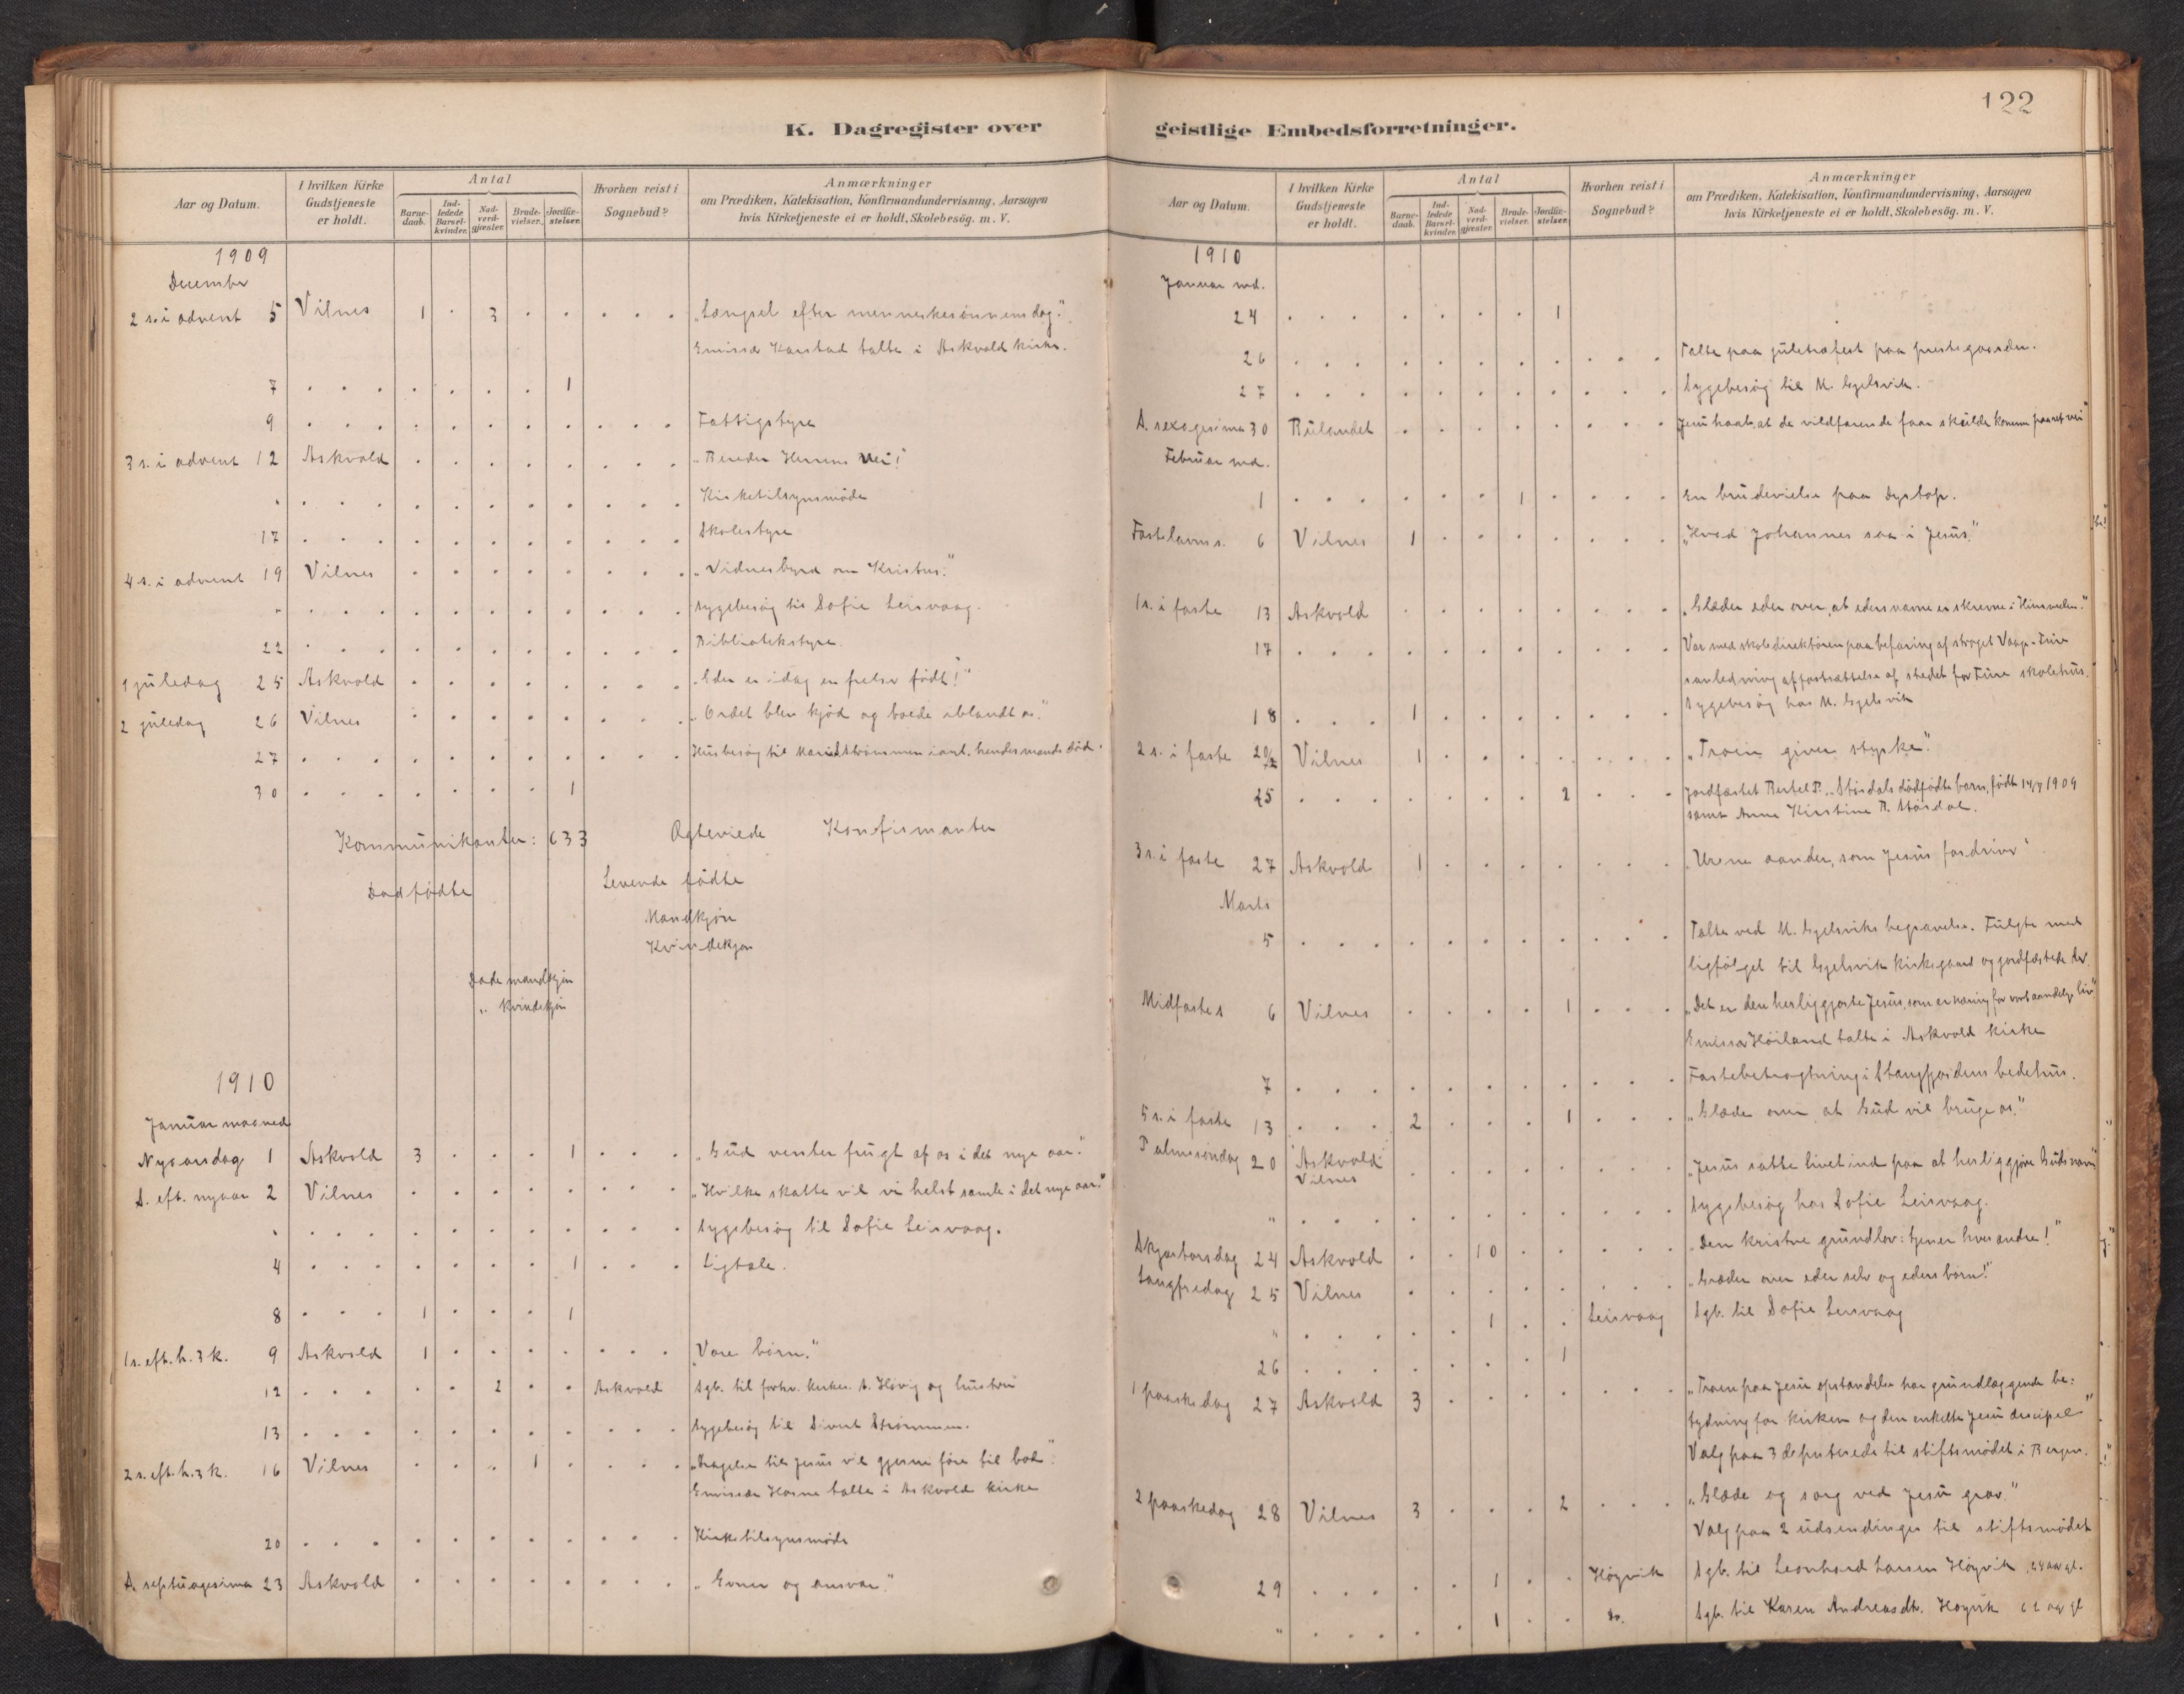 122
K. Dagregister over
geistlige Embedsforretninger.
Aar og Datum.
I hvilken Kirke Gudstjeneste er holdt.
Antal
Barne-daab.
Ind-ledede Barsel-kvinder.
Nad-verd-gjæster.
Brude-vielser.
Jordfæ-stelser.
Hvorhen reist i Sognebud?
Anmærkninger
om Prædiken, Katekisation, Konfirmandundervisning, Aarsagen
hvis Kirketjeneste ei er holdt, Skolebesøg. m. V.
1909
December
2 s. i advent 5 Vilnes 1 . 3 . . . . . "Længsel efter menneskesønnens dag."
Emissær Karstad talte i Askvold kirke.
7 . . . . . . . . 1
9 . . . . . . . . . . . Fattigstyre
3 s. i advent 12 Askvold . . . . . . . . "Bereder Herrens vei!"
" . . . . . . . . . . . Kirketilsynsmøde
17 . . . . . . . . . . . Skolestyre
4 s. i advent 19 Vilnes . . . . . . . . "Vidnesbyrd om Kristus."
" . . . . . . . . . . . Sygebesøg til Sofie Leirvaag.
22 . . . . . . . . . . . Bibliotekstyre
1 juledag 25 Askvold . . . . . . . . "Eder er idag en frelser født!"
2 juledag 26 Vilnes . . . . . . . . "Ordet blev kjød og boede iblandt os."
27 . . . . . . . . . . . Husbesøg til Strømmen i anl. hendes mands død.
30 . . . . . . . 1
Kommunikanter: 633 Ægteviede Konfirmanter
Dødfødte Levende fødte
Mandkjøn
Kvindekjøn
Døde mandkjøn
" kvindekjøn
1910
Januar maaned
Nyaarsdag 1 Askvold 3 . . . 1 . . . "Gud venter frugt af os i det nye aar."
S. eft. nyaar 2 Vilnes . . . . . . . . "Hvilke skatte vil vi helst samle i det nye aar."
" . . . . . . . . . . . Sygebesøg til Sofie Leirvaag.
4 . . . . . . . 1 . . . Ligtale.
8 . . . 1 . . . 1
1 s. eft. h. 3 k. 9 Askvold 1 . . . . . . . "Vore børn."
12 . . . . . 2 . . Askvold Sgb. til forhv. kirkes. A. Høvig og hustru
13 . . . . . . . . . . . Sygebesøg til Sivert Strømmen.
2 s. eft. h. 3 k. 16 Vilnes . . . 1 . . . . "Dragelse til Jesus vil gjerne føre til bod."
Emissær Horne talte i Askvold kirke
20 . . . . . . . . . . . Kirketilsynsmøde
S. septuagesima 23 Askvold . . . . . . . . "Evner og ansvar."
Aar og Datum.
I hvilken Kirke Gudstjeneste er holdt.
Antal
Barne-daab.
Ind-ledede Barsel-kvinder.
Nad-verd-gjæster.
Brude-vielser.
Jordfæ-stelser.
Hvorhen reist i Sognebud?
Anmærkninger
om Prædiken, Katekisation, Konfirmandundervisning, Aarsagen
hvis Kirketjeneste ei er holdt, Skolebesøg. m. V.
1910
Januar md.
24 . . . . . . . 1
26 . . . . . . . . . . . Talte paa juletræfest paa prestegaarden.
27 . . . . . . . . . . . Sygebesøg til M. Egelsvik.
S. sexagesima 30 Bulandet . . . . . . . . Jesu haab, at de vildfarende faar skulde komme paa ret vei"
Februar md.
1 . . . . . . 1 . . . . En brudevielse paa
Fastelavns s. 6 Vilnes 1 . . . . . . . "Hvad Johannes saa i Jesus."
1 s. i faste 13 Askvold . . . . . . . . "Glæder eder over, at eders navne er skrevne i Himmelen."
17 . . . . . . . . . . . Var med skoledirektøren paa befaring af strøget
i anledning af fastsættelse af stedet for skolehus.
18 . . . 1 . . . . . . . Sygebesøg hos M. Egelsvik
2 s. i faste 20 Vilnes 1 . . . . . . . "Troen giver styrke."
25 . . . . . . . 2 . . . Jordfæstet Bertel P. Stördals dødfødte barn, født 14/7 1909
samt Anna Kirstine B. Stördal.
3 s. i faste 27 Askvold 1 . . . . . . . "Urene aander, som Jesus fordriver"
Marts
5 . . . . . . . . . . . Talte ved M. Egelsviks begravelse. Fulgte med
ligfølget til Egelsvik kirkegaard og jordfæstede der.
Midfastes 6 Vilnes . . . . 1 . . . "Det er den herliggjorte Jesus, som er næring for vort aandelige liv."
Emissær Höiland talte i Askvold kirke
7 . . . . . . . . . . . Fastebetragtning i Stangfjordens bedehus.
5 s. i faste 13 . . . 2 . . . 1 . . . "Glæde over at Gud vil bruge os."
Palmesøndag 20 Askvold Vilnes . . . . . . . . "Jesus satte livet ind paa at herliggjøre Guds navn"
" . . . . . . . . . . . Sygebesøg hos Sofie Leirvaag.
Skjærtorsdag 24 Askvold . . 10 . . . . . "Den kristne grundlov: tjener hverandre!"
Langfredag 25 Vilnes . . . . . . . . "Græder over eder selv og eders børn!"
" . . . . . 1 . . Leirvaag Sgb. til Sofie Leirvaag
26 . . . . . . . 1
1 paaskedag 27 Askvold 3 . . . . . . . "Troen paa Jesu opstandelse har grundlæggende be-
tydning for kirken og den enkelte Jesu discipel"
Valg paa 3 deputerede til stiftsmødet i Bergen.
2 paaskedag 28 Vilnes 3 . . . 2 . . . "Glæde og sorg ved Jesu grav."
Valg paa 2 udsendinger til stiftsmødet
29 . . . . . 1 . . Høyvik Sgb. til Leonhard Larsen Høyvik 24 aar gl.
" . . . . . 1 . . do. Sgb. til Karen Andreasdtr. Høyvik 62 aar gl